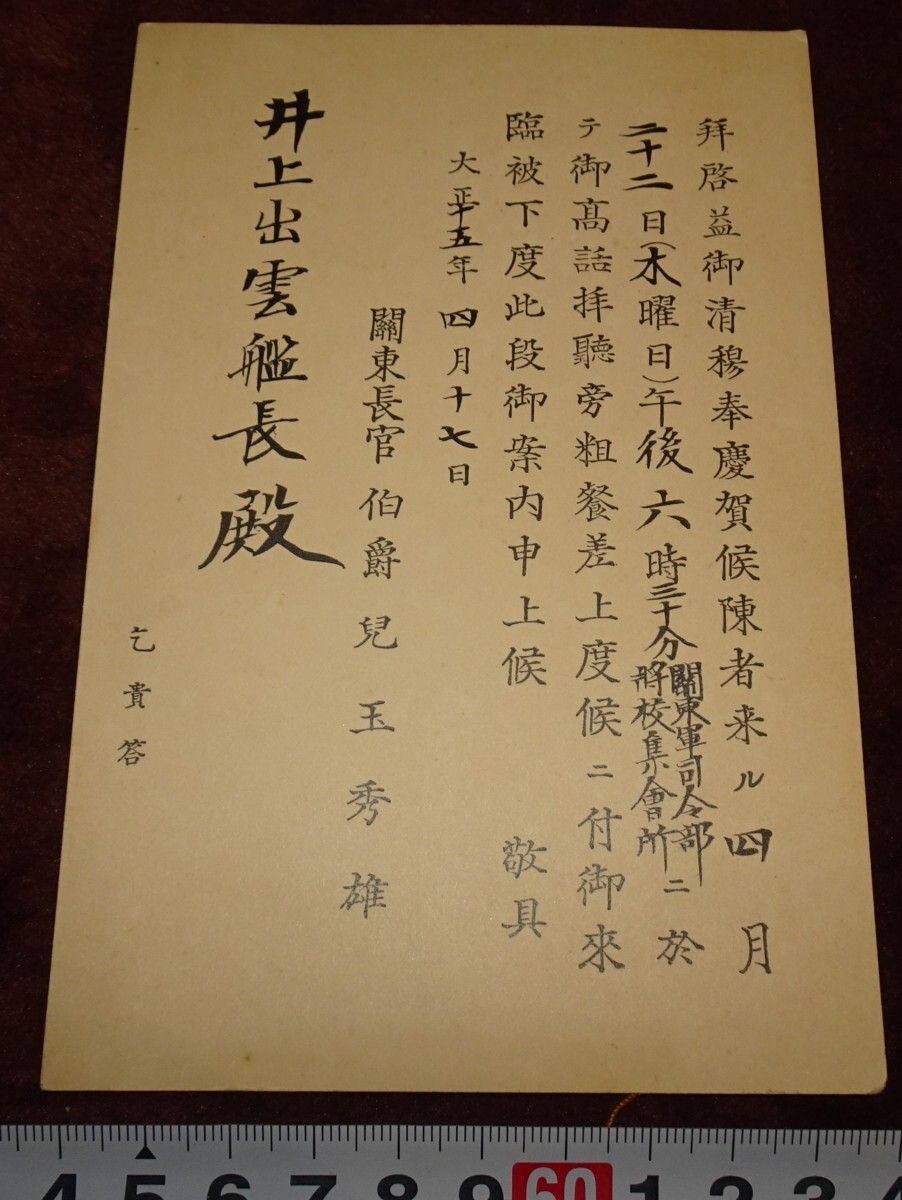 拜啓益御清穆奉慶賀候陳者来ル四月
二十二日(木曜日)午後六時三十分關東軍司令部將校集會所ニ於
テ御高話拝聽旁粗餐差上度候ニ付御來
臨被下度此段御案内申上候 敬具
大正十五年四月十七日
關東長官伯爵兒玉秀雄
井上出雲艦長殿
乞貴答
4 5 6 7 8 9 60 1 2 3 4